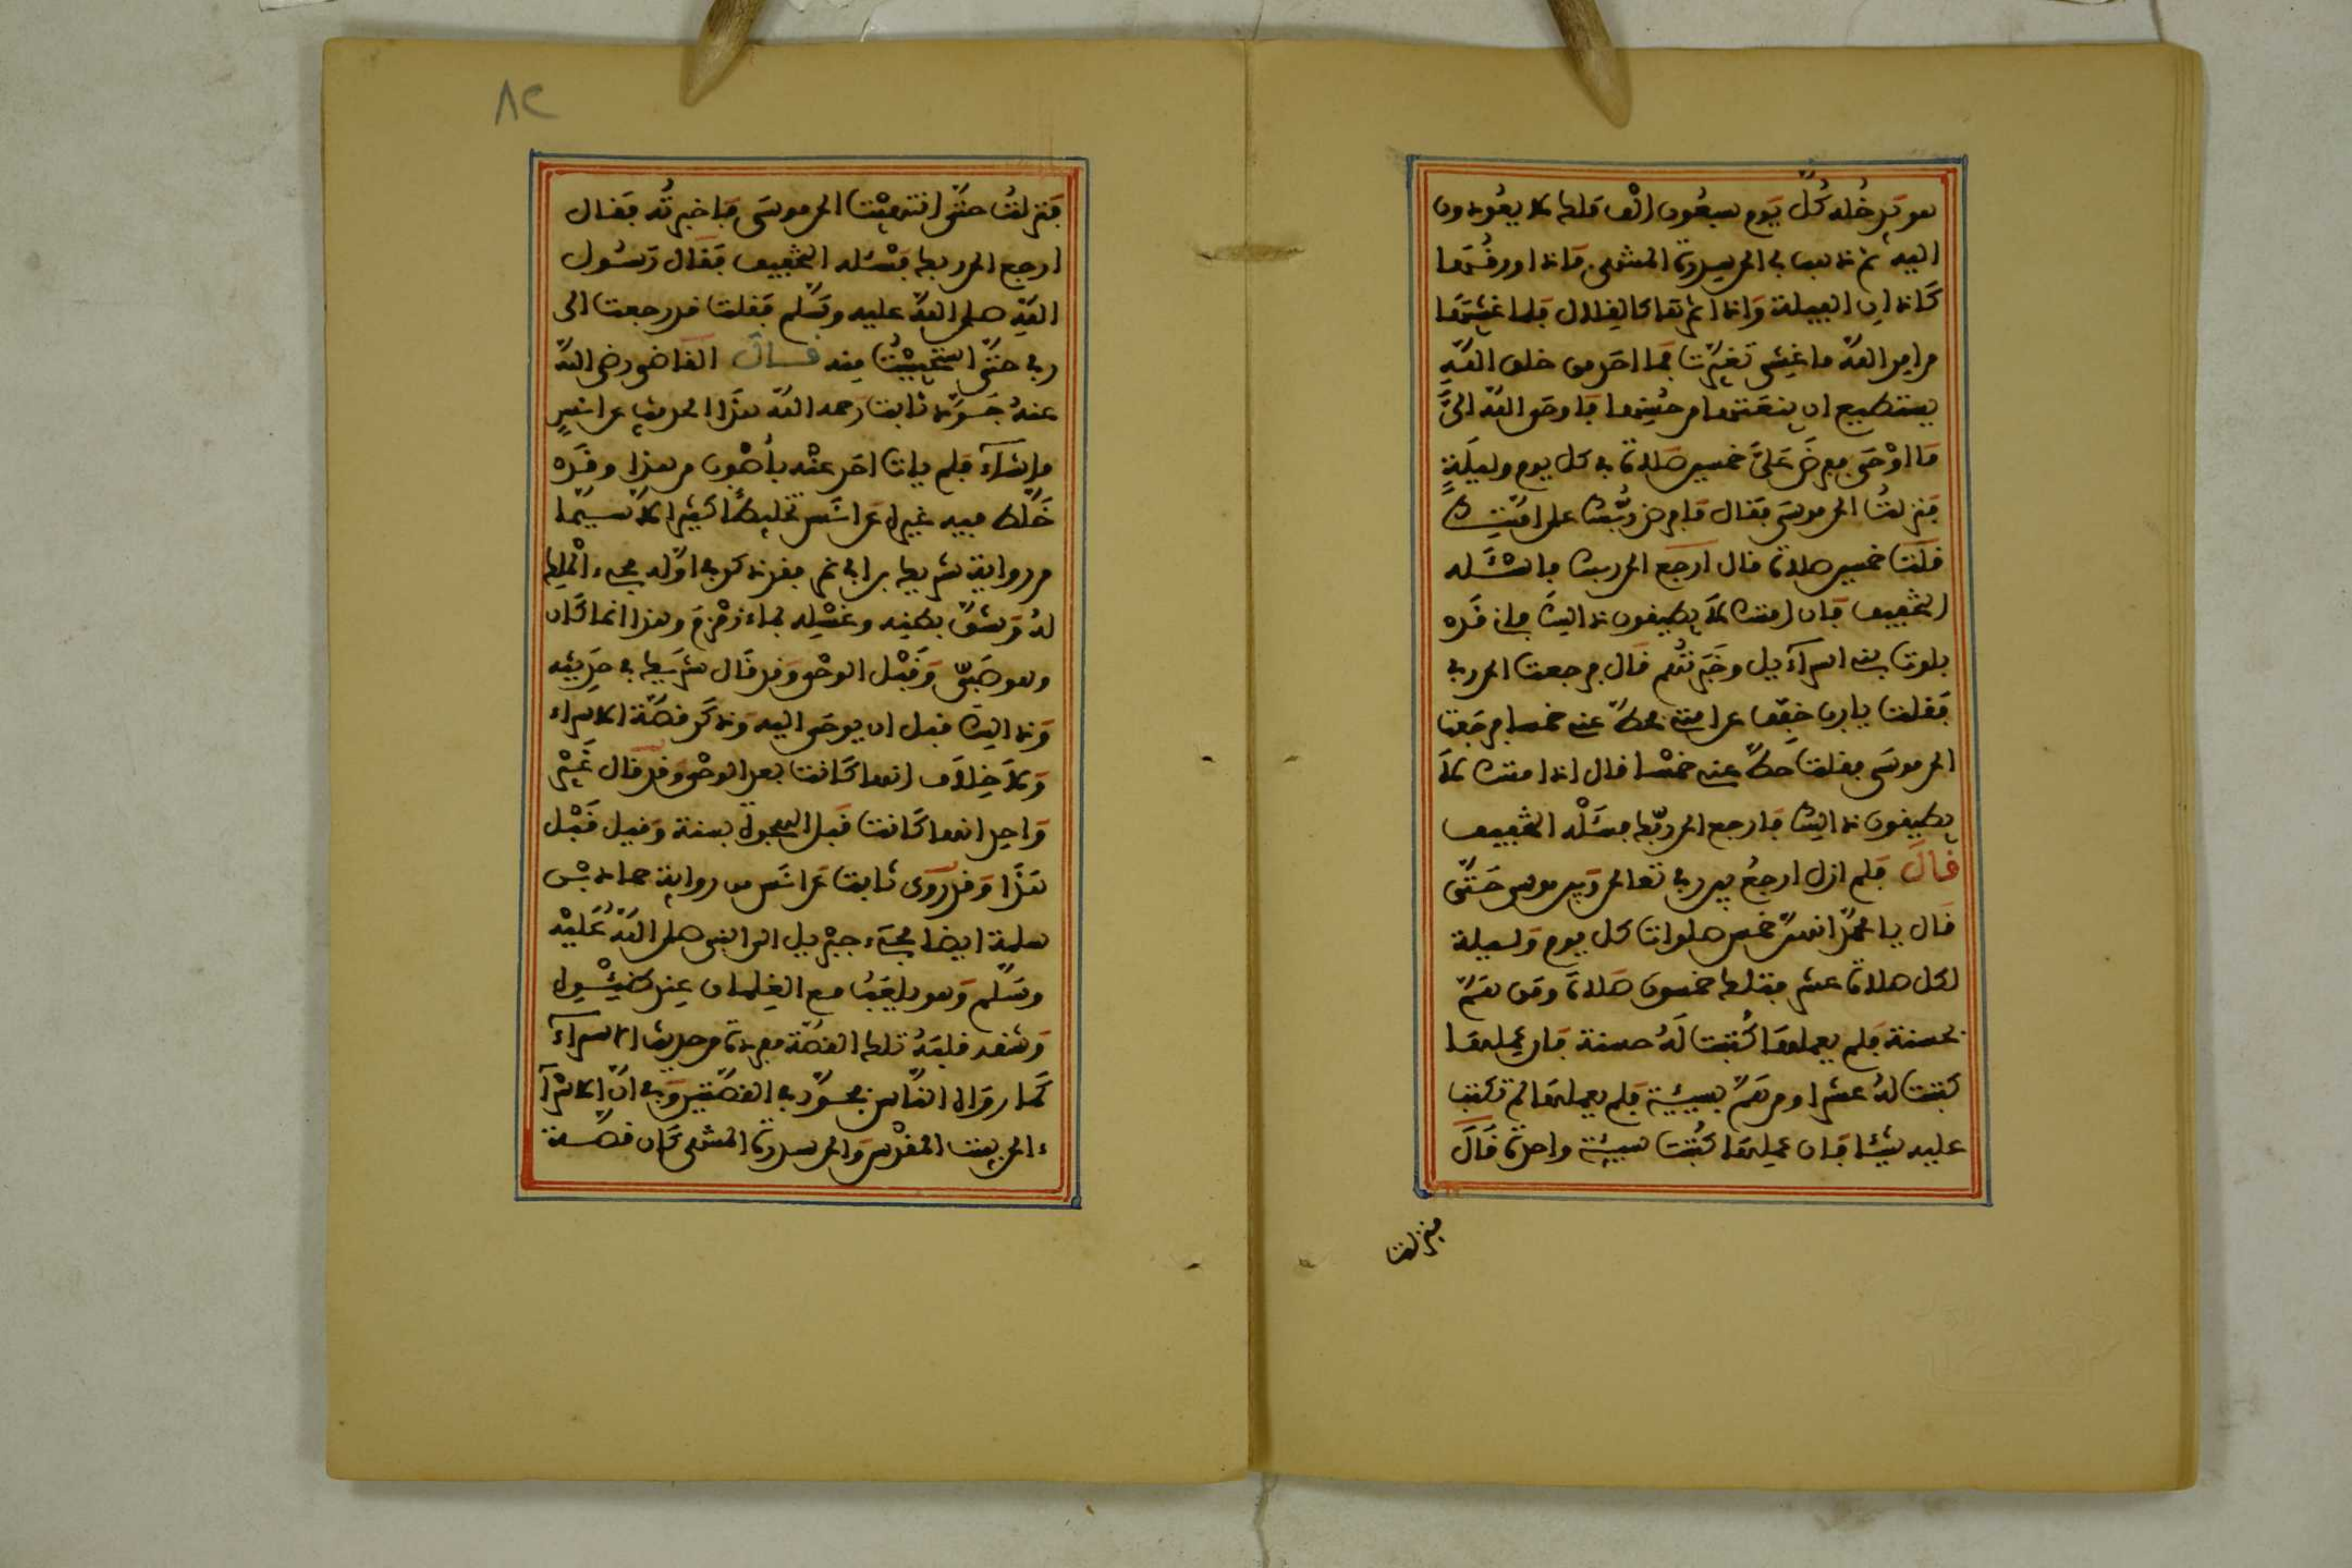 هو يدخله كل يوم سبعون الف ملك لا يعودون
اليه ثم ذهب بي الى سدرة المنتهى فاذا ورقها
كاذان الفيلة واذا ثمرها كالقلال فلما غشيها
من امر الله ما غشي تغيرت فما احد من خلق الله
يستطيع ان ينعتها من حسنها فاوحى الله الي
ما اوحى ففرض علي خمسين صلاة في كل يوم وليلة
فنزلت الى موسى فقال ما فرض ربك على امتك
قلت خمسين صلاة قال ارجع الى ربك فاسئله
التخفيف فان امتك لا يطيقون ذالك فاني قد
بلوت بني اسرآءيل وخبرتهم قال فرجعت الى ربي
فقلت يا رب خفف عن امتي فحط عني خمسا فرجعت
الى موسى فقلت حط عني خمسا قال ان امتك لا
يطيقون ذالك فارجع الى ربك فسئله التخفيف
قال فلم ازل ارجع بين ربي تعالى وبين موسى حتى
قال يا محمد انهن خمس صلوات كل يوم وليلة
لكل صلاة عشر فتلك خمسون صلاة ومن هم
بحسنة فلم يعملها كتبت له حسنة فان عملها
كتبت له عشرا ومن هم بسيئة فلم يعملها لم تكتب
عليه شيئا فان عملها كتبت سيئة واحدة قال
فنزلت
٨٢
فنزلت حتى انتهيت الى موسى فاخبرته فقال
ارجع الى ربك فسئله التخفيف فقال رسول
الله صلى الله عليه وسلم فقلت قد رجعت الى
ربي حتى استحييت منه قال القاضي رضي الله
عنه جود ثابت رحمه الله هذا الحديث عن انس
ما شآء فلم يات احد عنه باصوب من هذا وقد
خلط فيه غيره عن انس تخليطا كثيرا لا سيما
من رواية شريك بن ابي نمر فقد ذكر في اوله مجيء الملك
له وشق بطنه وغسله بماء زمزم وهذا انما كان
وهو صبي وقبل الوحي وقد قال شريك في حديثه
وذالك قبل ان يوحى اليه وذكر قصة الاسراء
ولا خلاف انها كانت بعد الوحي وقد قال غير
واحد انها كانت قبل الهجرة بسنة وقيل قبل
هذا وقد روى ثابت عن انس من رواية حماد بن
سلمة ايضا مجيء جبريل الى النبي صلى الله عليه
وسلم وهو يلعب مع الغلمان عند ظئره
وشقه قلبه تلك القصة مفردة من حديث الاسرآء
كما رواه الناس فجود في القصتين وفي ان الاسرآ
ء الى بيت المقدس والى سدرة المنتهى كان قصة